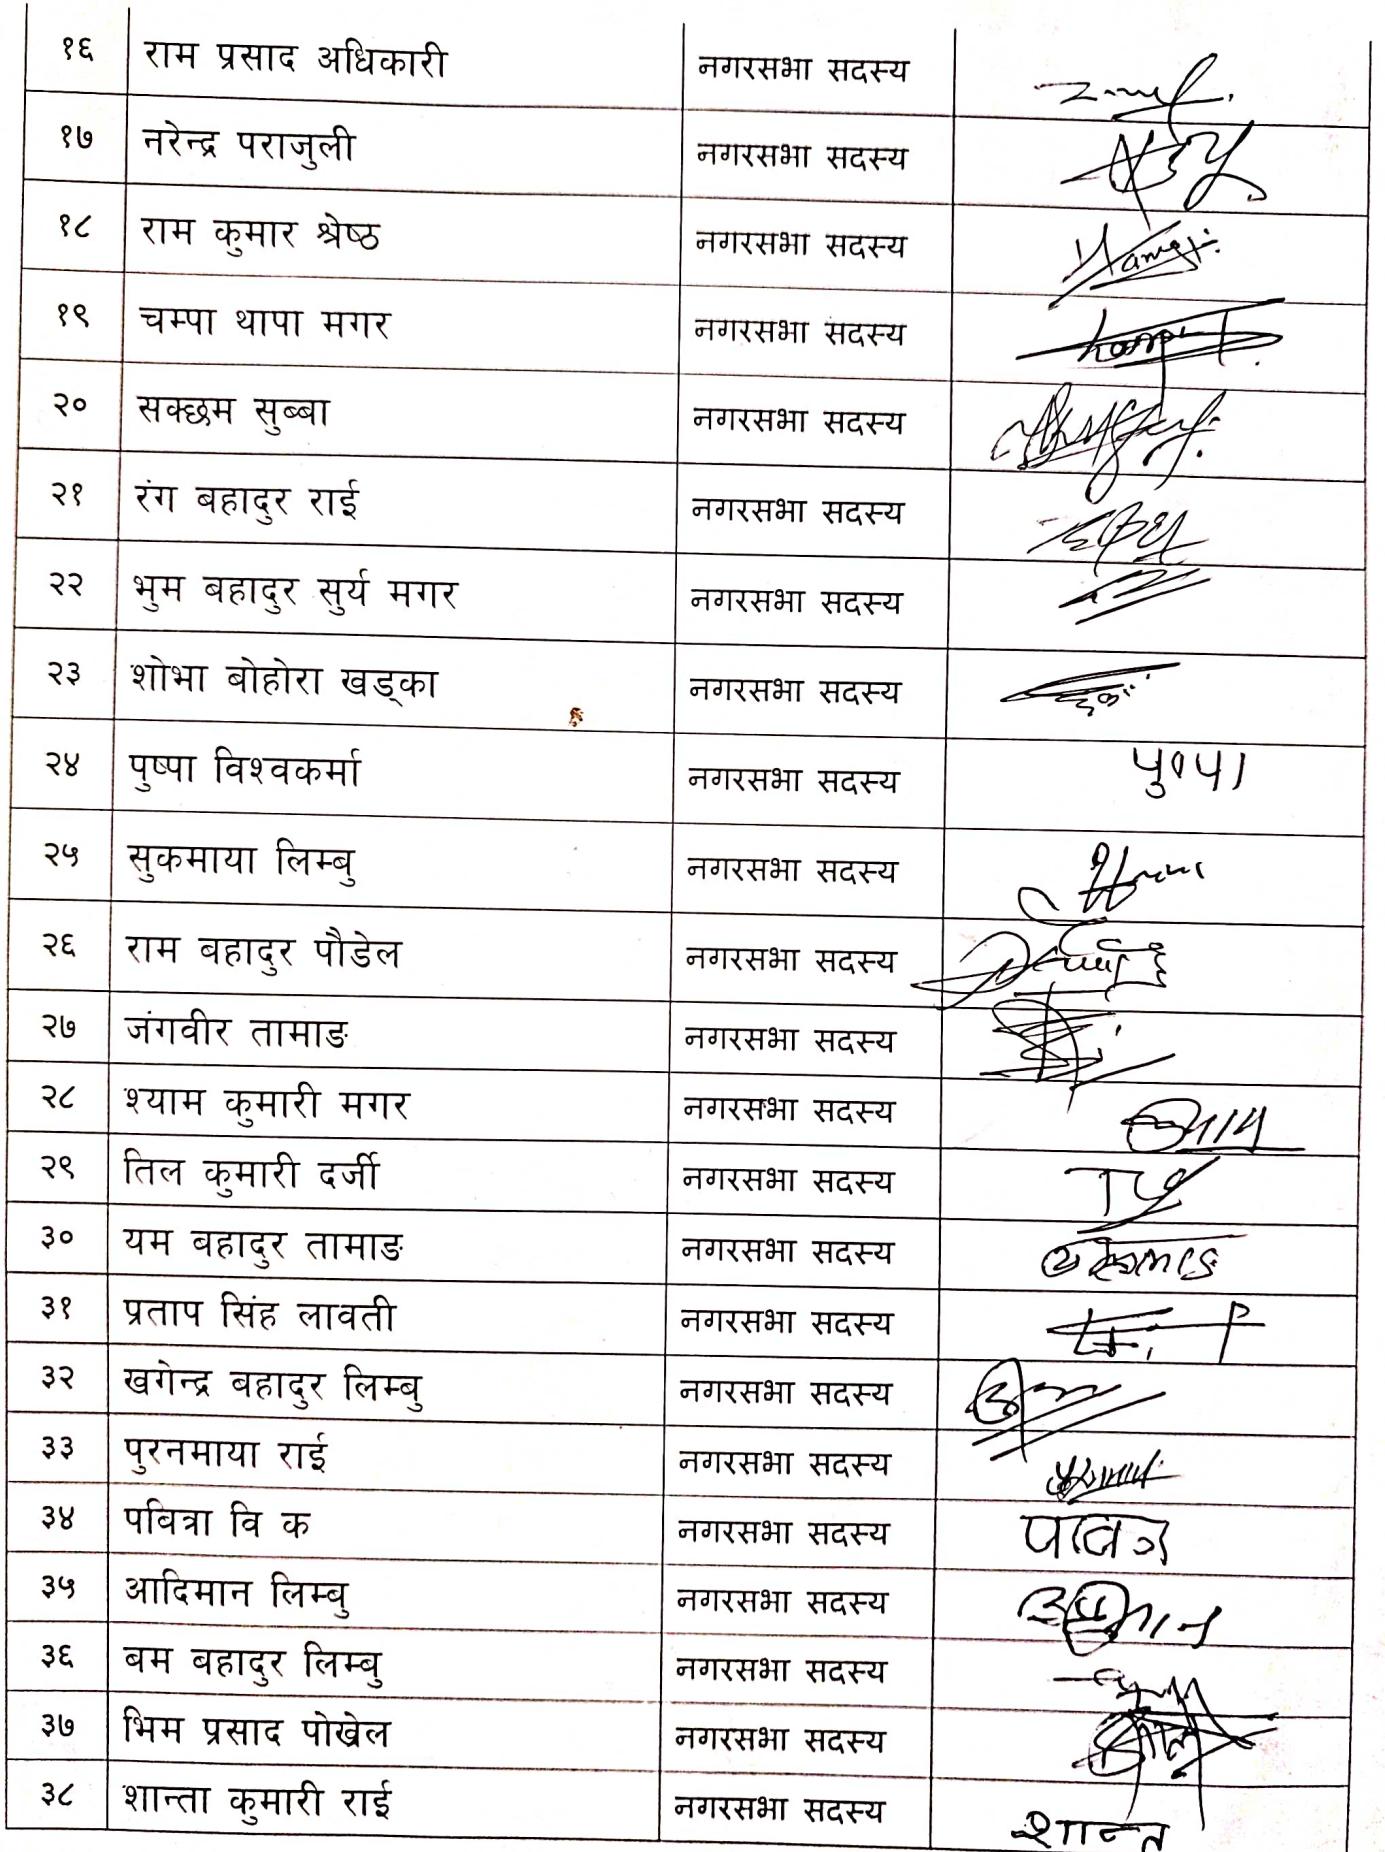 १६ राम प्रसाद अधिकारी नगरसभा सदस्य
१७ नरेन्द्र पराजुली नगरसभा सदस्य
१८ राम कुमार श्रेष्ठ नगरसभा सदस्य
१९ चम्पा थापा मगर नगरसभा सदस्य
२० सक्छम सुब्बा नगरसभा सदस्य
२१ रंग बहादुर राई नगरसभा सदस्य
२२ भुम बहादुर सुर्य मगर नगरसभा सदस्य
२३ शोभा बोहोरा खड्का नगरसभा सदस्य
२४ पुष्पा विश्वकर्मा नगरसभा सदस्य पुष्पा
२५ सुकमाया लिम्बु नगरसभा सदस्य
२६ राम बहादुर पौडेल नगरसभा सदस्य
२७ जंगवीर तामाङ नगरसभा सदस्य
२८ श्याम कुमारी मगर नगरसभा सदस्य
२९ तिल कुमारी दर्जी नगरसभा सदस्य
३० यम बहादुर तामाङ नगरसभा सदस्य
३१ प्रताप सिंह लावती नगरसभा सदस्य
३२ खगेन्द्र बहादुर लिम्बु नगरसभा सदस्य
३३ पुरनमाया राई नगरसभा सदस्य
३४ पबित्रा वि क नगरसभा सदस्य
३५ आदिमान लिम्बु नगरसभा सदस्य
३६ बम बहादुर लिम्बु नगरसभा सदस्य
३७ भिम प्रसाद पोख्रेल नगरसभा सदस्य
३८ शान्ता कुमारी राई नगरसभा सदस्य शान्त